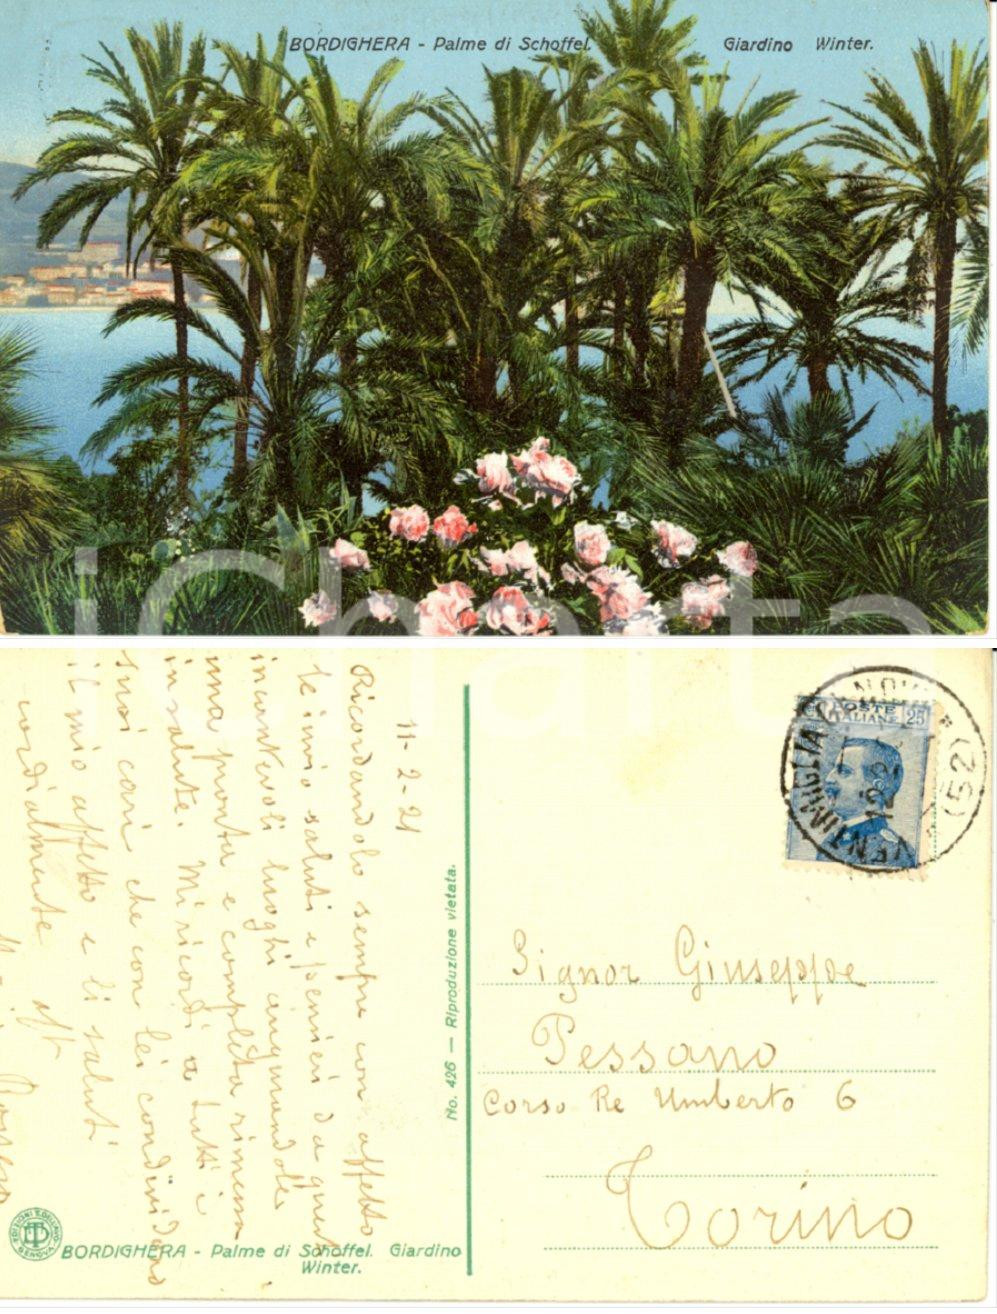 BORDIGHERA - Palme di Schoffel. Giardino Winter.
iCharta
11-2-21
Ricordandolo sempre con affetto
le invio saluti e pensieri da questi
incantevoli luoghi augurandole
una pronta e completa rimessa
in salute. Mi ricordi a tutti i
suoi cari che con lei condividono
il mio affetto e li saluti
cordialmente
No. 426 — Riproduzione vietata.
POSTE ITALIANE 25
VENTIMIGLIA
(52)
Signor Giuseppe
Pessano
Corso Re Umberto 6
Torino
EDIZIONI GENOVA
BORDIGHERA - Palme di Schoffel. Giardino
Winter.